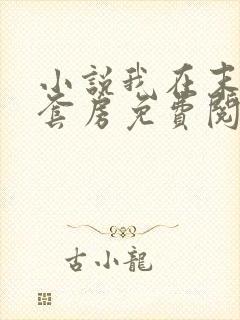 小說我在末
套房免費閱
古小龍